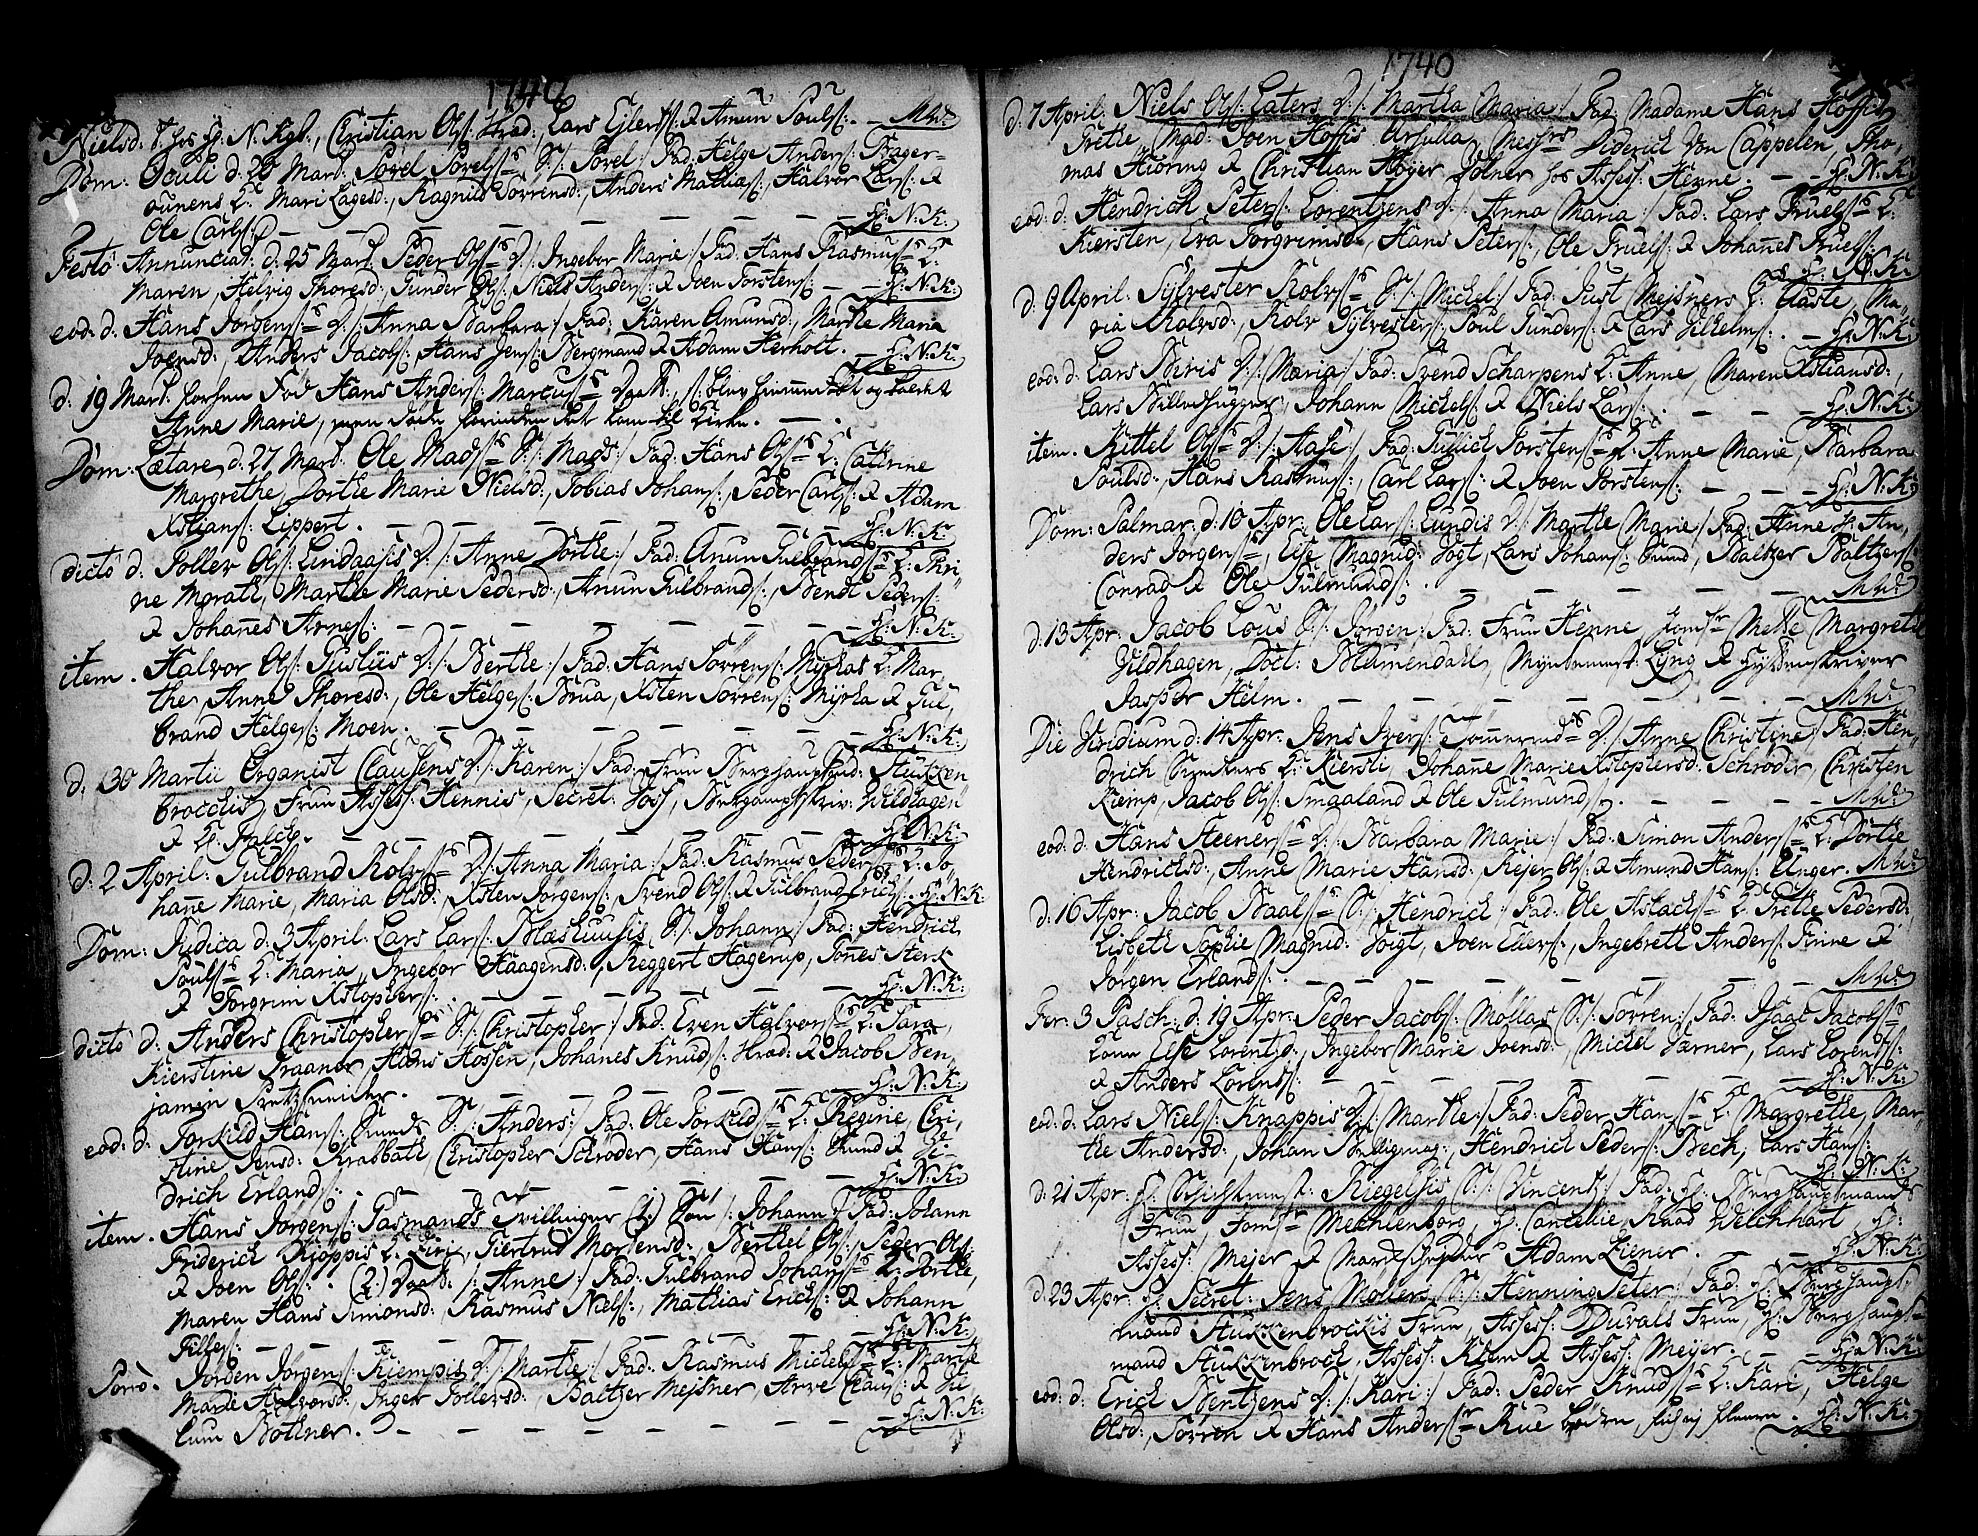 1740
Nielsd. T. hos H. N. Kgb., Christian Ols: Hrad, Lars Ejlers: & Amun Pouls:. Mkd:
Dom: Oculi d. 20 Mart. Povel Povels: S:/: Povel:/ Fad: Helge Anders: Brager-
ounens K: Mari Lagesd:, Ragnild Torrensd:, Anders Mathias:, Halvor Lars: &
Ole Carls: H: N: K:
Festo Annunciat: d: 25 Mart. Peder Ols: D:/: Ingebor Marie:/ Fad: Hans Rasmus: K:
Maren, Helvig Thoresd:, Gunder Ols:, Niels Anders: & Joen Torstens: H: N: K:
eod: d: Hans Jorgens: D:/: Anna Barbara:/ Fad: Karen Amunsd:, Marthe Maria
Joensd:, Anders Jacobs:, Hans Jens: Bergmand & Adam Herholt. H: N: K:
d: 19 Mart. Hans Anders: Marcus: blev hiemme døbt og kaldet
Anne Marie, men døde forinden det kom til Kirke.
Dom: Lætare d. 27 Mart. Ole Mads: S:/: Mads:/ Fad: Hans Ols: K: Cathrine
Margrethe, Dorthe Marie Nielsd:, Tobias Johans:, Peder Carls: & Adam
Xstians: Lippert. H: N: K:
dicto d: Poller Ols: Lindaasis D:/: Anne Dorthe:/ Fad: Anun Gulbrands: K: Thri-
ne Morath, Marthe Marie Pedersd:, Anun Gulbrands:, Bendt Peders:
& Johañes Arnes: H: N: K:
item. Halvor Ols: Gusliis D:/: Berthe:/ Fad: Hans Torrens: Myrhas K: Mar-
the, Anne Thoresd:, Ole Helges: Brua, Xsten Torrens: Myrha & Gul,
brand Helges: Moen. H: N: K:
d: 30 Martii Organist Clausens D:/: Karen:/ Fad: Frue Berghauptmd: Stukken
brockis, Frue Assess: Hennis, Secret: Vos, Bergamptskriv: Vildhagen
& H: Falck. H: N: K:
d: 2 April: Gulbrand Rolvs: D:/: Anna Maria:/ Fad: Rasmus Peders: K: Jo,
hañe Marie, Maria Olsd:, Xsten Jørgens:, Svend Ols: & Gulbrand Erichs: H: N: K:
Dom: Judica d. 3 April. Lars Lars: Blæskuusis S:/: Johann:/ Fad: Hendrich
Pouls: K: Maria, Ingebor Haagensd:, Reggert Hagerup, Tønes Sterk
& Torgrim Xstophers: H: N: K:
dicto d: Anders Christophers: S:/: Christopher:/ Fad: Even Halvors: K: Sara,
Kierstine Traaner, Hans Hossen, Johanes Knuds: Hrad: & Jacob Ben,
jamen H: N: K:
eod: d: Torkild Hans: S:/: Anders:/ Fad: Ole Torkilds: K: Regine, Cri,
stine Jensd: Krabbath, Christopher Schrøder, Hans Hans: Grund & He
drich Erlands: H: N: K:
item. Hans Jørgens: Pasmands Tvillinger (1.) Søn :/ Johann:/ Fad: Johann
Friderich Kioppis K: Siri, Giertrud Mortensd:, Berthel Ols:, Peder Ols:
& Joen Ols: (2.) :/: Anne:/ Fad: Gulbrand Johans: K: Dorthe,
Maren Hans Simonsd: Rasmus Niels:, Mathias Erichs: & Johann
Gilles: H: N: K:
Porro. Jorden Jorgens: Kiempis D:/: Marthe:/ Fad: Rasmus Michels: K: Marthe
Marie Halvorsd:, Inger Pollersd:, Baltzer Mejsner, Arve Claus: &
lum Bottner. H: N: K:
1740
d: 7 April: Niels Ols: Eaters D:/: Martha Maria:/ Fad: Madame Hans Hoffis
Grethe, Mad: Joen Hoffis Ursulla, Messrs Diderich Von Cappelen, Tho,
mas Hiøring & Christian Høyer Tolner hos Assess: Henne. H: N: K:
eod: d: Hendrich Peters: Lorentzens D:/: Anna Maria:/ Fad: Lars Truels: K:
Kiersten, Eva Torgrimsd:, Hans Peters:, Ole Truels: & Johañes Truels:
H: N: K:
d: 9 April: Sylvester Rolvs: S:/: Michel:/ Fad: Just Mejsners K: Aaste, Ma,
ria Rolvsd:, Rolv Sylvesters:, Poul Gunders: & Lars Vilhelms: H: N: K:
eod: d: Lars Biris D:/: Maria:/ Fad: Svend Scharpens K: Anne, Maren Xstiansd:,
Lars Billedhugger, Johann Michels: & Niels Lars: H: N: K:
item. Kittel Ols: D:/: Aase:/ Fad: Gullich Torstens: K: Anne Marie, Barbara
Poulsd:, Hans Rasmus:, Carl Lars: & Joen Torstens: H: N: K:
Dom: Palmar: d: 10 Apr: Ole Lars: Lundis D:/: Marthe Marie:/ Fad: Anne H: An,
ders Jorgens:, Else Magnid: Vogt, Lars Johans: Brund, Baltzer Baltzers:
Conrad & Ole Gulmunds: Mkd:
d: 13 Apr. Jacob Lous S:/: Jørgen:/ Fad: Frue Henne Jomfr Mette Margrethe
Vildhagen, Doct: Blumendahl, Myntemest: Lyng & Hyttenskriver
Jasper Helm. Mkd:
Die Viridium d: 14 Apr: Jens Ivers: D:/: Anne Christine:/ Fad: Hen-
drich K: Kiersti, Johañe Marie Xstophersd: Schrøder, Christen
Kiemp, Jacob Ols: Smaaland & Ole Gulmunds: Mkd:
eod: d: Hans Steeners: D:/: Barbara Marie:/ Fad: Simon Anders: K: Dorthe
Hendrichsd:, Anne Marie Hansd:, Rejer Ols: & Amund Hans: Unger. Mkd:
d: 16 Apr: Jacob Baals: S:/: Hendrich:/ Fad: Ole Aslachs: K: Grethe Pedersd:
Lisbeth Sophie Magnid: Voigt, Joen Ellers:, Ingebreth Anders: Finne &
Jørgen Erlands: Mkd:
Fer: 3 Pasch: d: 19 Apr: Peder Jacobs: Mollas S:/: Sørren:/ Fad: Isaac Jacobs:
Kone Else Lorentzd:, Ingebor Marie Joensd:, Michel Værner, Lars Lorends:
& Anders Lorens: H: N: K:
eod: d: Lars Niels: Knappis D:/: Marthe:/ Fad: Peder Hans: K: Margrethe, Mar-
the Andersd:, Johan , Hendrich Peders: Bech, Lars Hans:
H: N: K:
d: 21 Apr: H: Schichtmest: Riegelsis S:/: Vincent:/ Fad: H: Berghauptmands
Frue, Jomfr Mechlenborg, H: Cancellie Raad Welchhart, H:
Assess: Mejer & Adam Kiener. H: N: K:
d: 23 Apr: H: Secret: Jens Mollers S:/: Henning Peter:/ Fad: H: Berghaupt,
mand Stukkenbrockis Frue, Assess: Duvals Frue, H: Berghaupt-
mand Stukkenbrock, Assess: Klem & Assess: Mejer. H: N: K:
eod: d: Erich Bentzens D:/: Kari:/ Fad: Peder Knuds: K: Kari, Helge
Olsd:, Tørren & Hans Anders: H: N: K: